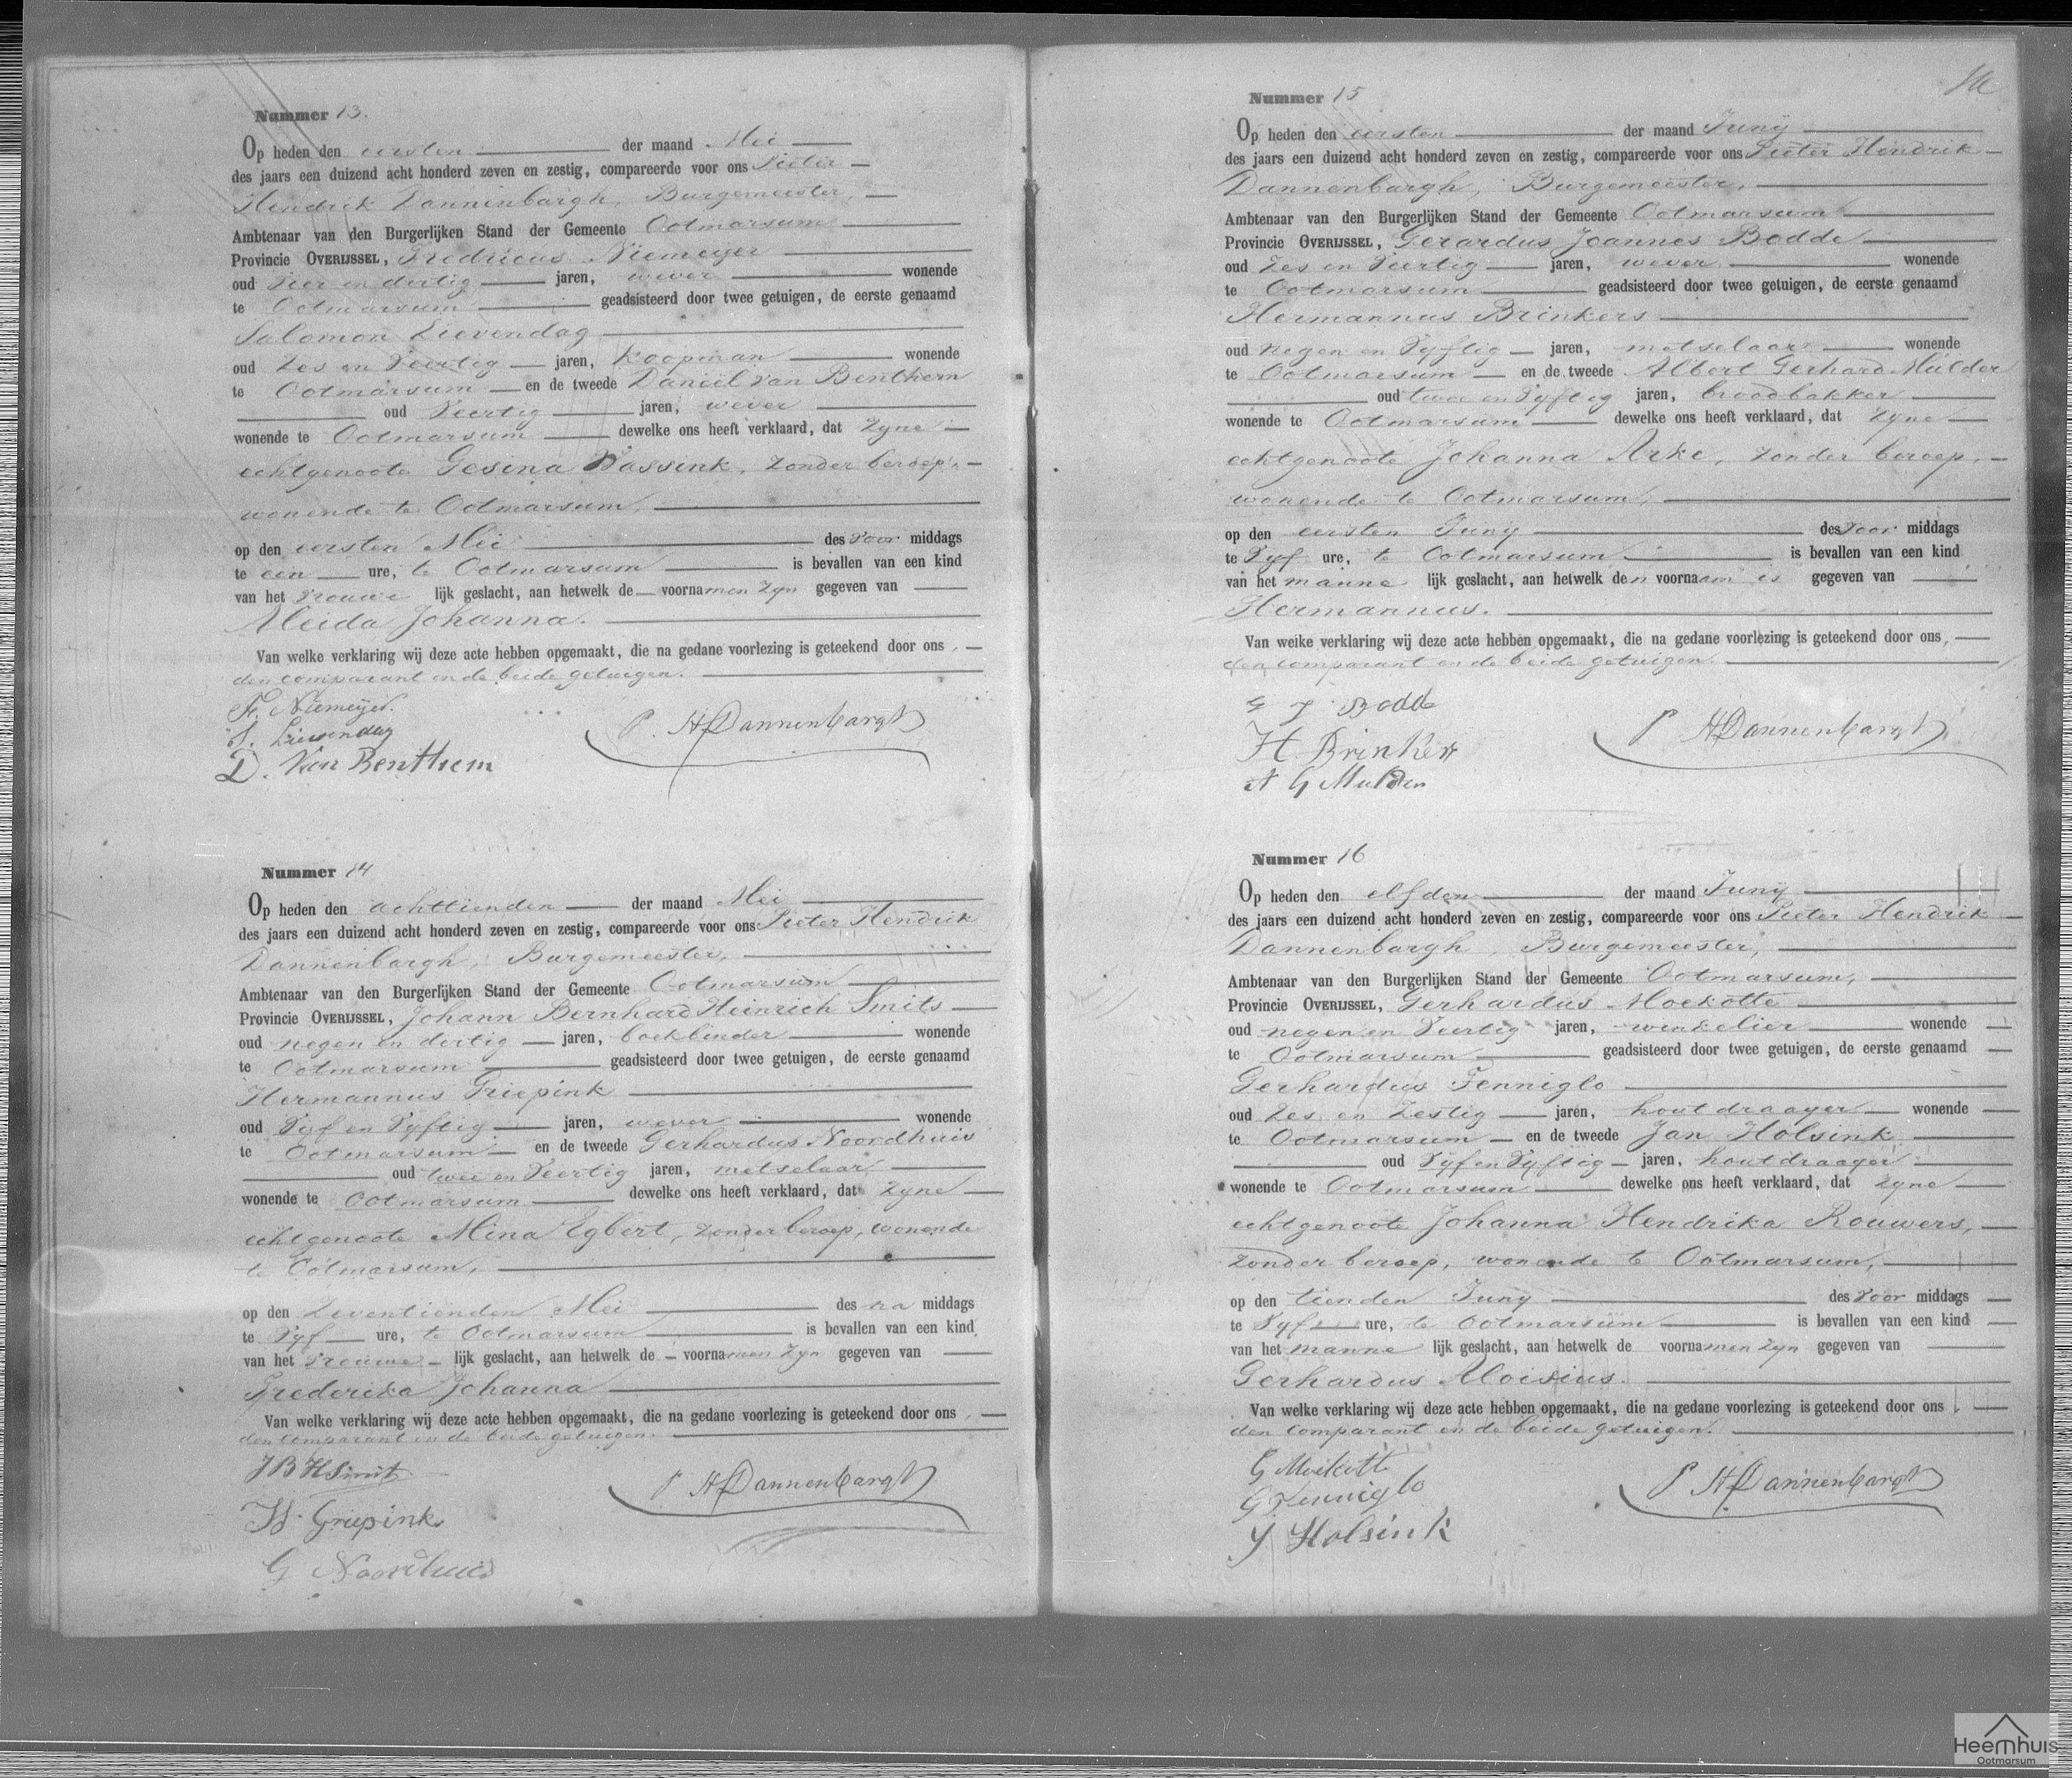 Nummer 13.
Op heden den eersten der maand Mei
des jaars een duizend acht honderd zeven en zestig, compareerde voor ons Pieter
Hendrik Dannenbargh, Burgemeester,
Ambtenaar van den Burgerlijken Stand der Gemeente Ootmarsum
Provincie OVERIJSSEL, Fredricus Niemeijer
oud Vier en dertig jaren, wever wonende
te Ootmarsum geadsisteerd door twee getuigen, de eerste genaamd
Salomon Lievendag
oud Zes en Veertig jaren, Koopman wonende
te Ootmarsum en de tweede Daniel van Benthem
oud Veertig jaren, wever
wonende te Ootmarsum dewelke ons heeft verklaard, dat zyne
echtgenoote Gesina Wassink, zonder beroep,
wonende te Ootmarsum,
op den eersten Mei des Voor middags
te een ure, te Ootmarsum is bevallen van een kind
van het Vrouwe lijk geslacht, aan hetwelk de voornamen zyn gegeven van
Aleida Johanna.
Van welke verklaring wij deze acte hebben opgemaakt, die na gedane voorlezing is geteekend door ons,
den comparant en de beide getuigen.
Fr. Niemeijer.
S. Lievendag
P. H Dannenbargh
D. Van Benthem
Nummer 14
Op heden den achttienden der maand Mei
des jaars een duizend acht honderd zeven en zestig, compareerde voor ons Pieter Hendrik
Dannenbargh, Burgemeester,
Ambtenaar van den Burgerlijken Stand der Gemeente Ootmarsum
Provincie OVERIJSSEL, Johann Bernhard Heinrich Smits
oud negen en dertig jaren, boekbinder wonende
te Ootmarsum geadsisteerd door twee getuigen, de eerste genaamd
Hermannus Griepink
oud Vyf en Vyftig jaren, wever wonende
te Ootmarsum en de tweede Gerhardus Noordhuis
oud twee en Veertig jaren, metselaar
wonende te Ootmarsum dewelke ons heeft verklaard, dat zyne
echtgenoote Mina Egbert, zonder beroep, wonende
te Ootmarsum,
op den Zeventienden Mei des na middags
te Vyf ure, te Ootmarsum is bevallen van een kind
van het Vrouwe lijk geslacht, aan hetwelk de voornamen zyn gegeven van
Frederika Johanna
Van welke verklaring wij deze acte hebben opgemaakt, die na gedane voorlezing is geteekend door ons,
den comparant en de beide getuigen.
J B H Smit
P H Dannenbargh
H. Griepink
G Noordhuis
Nummer 15
Op heden den eersten der maand Junij
des jaars een duizend acht honderd zeven en zestig, compareerde voor ons Pieter Hendrik
Dannenbargh, Burgemeester,
Ambtenaar van den Burgerlijken Stand der Gemeente Ootmarsum
Provincie OVERIJSSEL, Gerardus Joannes Bodde
oud Zes en Veertig jaren, wever wonende
te Ootmarsum geadsisteerd door twee getuigen, de eerste genaamd
Hermannus Brinkers
oud negen en Vyftig jaren, metselaar wonende
te Ootmarsum en de tweede Albert Gerhard Mulder
oud twee en Vyftig jaren, broodbakker
wonende te Ootmarsum dewelke ons heeft verklaard, dat zyne
echtgenoote Johanna Arke, zonder beroep,
wonende te Ootmarsum,
op den eersten Juny des Voor middags
te Vyf ure, te Ootmarsum is bevallen van een kind
van het manne lijk geslacht, aan hetwelk den voornaam is gegeven van
Hermannus.
Van welke verklaring wij deze acte hebben opgemaakt, die na gedane voorlezing is geteekend door ons,
den comparant en de beide getuigen.
G J Bodde
P H Dannenbargh
H Brinkers
A G Mulder
Nummer 16
Op heden den elfden der maand Junij
des jaars een duizend acht honderd zeven en zestig, compareerde voor ons Pieter Hendrik
Dannenbargh, Burgemeester,
Ambtenaar van den Burgerlijken Stand der Gemeente Ootmarsum,
Provincie OVERIJSSEL, Gerhardus Moekotte
oud negen en Veertig jaren, winkelier wonende
te Ootmarsum geadsisteerd door twee getuigen, de eerste genaamd
Gerhardus Tenniglo
oud Zes en Zestig jaren, houtdraager wonende
te Ootmarsum en de tweede Jan Holsink
oud Vyf en Vyftig jaren, houtdraager
wonende te Ootmarsum dewelke ons heeft verklaard, dat zyne
echtgenoote Johanna Hendrika Rouwers,
zonder beroep, wonende te Ootmarsum,
op den tienden Juny des Voor middags
te Vyf ure, te Ootmarsum is bevallen van een kind
van het manne lijk geslacht, aan hetwelk de voornamen zyn gegeven van
Gerhardus Aloisius.
Van welke verklaring wij deze acte hebben opgemaakt, die na gedane voorlezing is geteekend door ons,
den comparant en de beide getuigen.
G Moekotte
G Tenniglo
P H Dannenbargh
J Holsink
Heemhuis
Ootmarsum